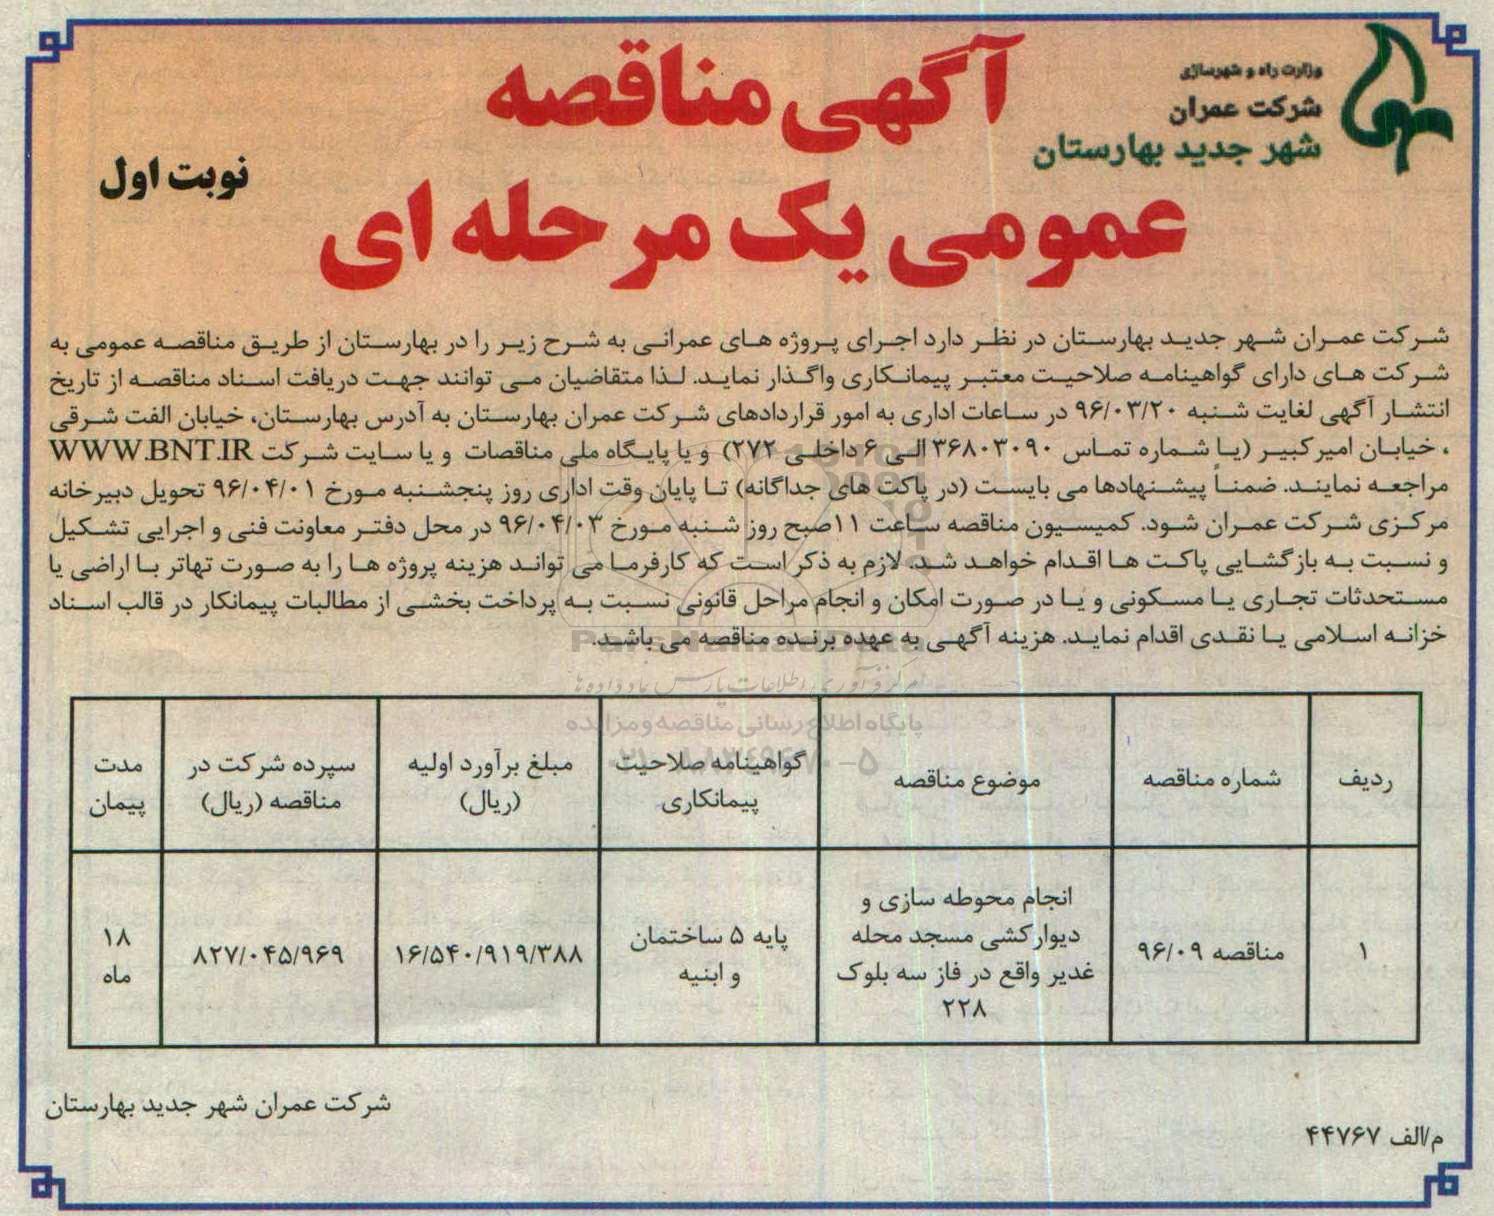 وزارت راه و شهرسازی
شرکت عمران
شهر جدید بهارستان
آگهی مناقصه
عمومی یک مرحله ای
نوبت اول
شرکت عمران شهر جدید بهارستان در نظر دارد اجرای پروژه های عمرانی به شرح زیر را در بهارستان از طریق مناقصه عمومی به
شرکت های دارای گواهینامه صلاحیت معتبر پیمانکاری واگذار نماید. لذا متقاضیان می توانند جهت دریافت اسناد مناقصه از تاریخ
انتشار آگهی لغایت شنبه ۹۶/۰۳/۲۰ در ساعات اداری به امور قراردادهای شرکت عمران بهارستان به آدرس بهارستان، خیابان الفت شرقی
، خیابان امیرکبیر (یا شماره تماس ۳۶۸۰۳۰۹۰ الی ۶ داخلی ۲۷۲) و یا پایگاه ملی مناقصات و یا سایت شرکت WWW.BNT.IR
مراجعه نمایند. ضمناً پیشنهادها می بایست (در پاکت های جداگانه) تا پایان وقت اداری روز پنجشنبه مورخ ۹۶/۰۴/۰۱ تحویل دبیرخانه
مرکزی شرکت عمران شود. کمیسیون مناقصه ساعت ۱۱صبح روز شنبه مورخ ۹۶/۰۴/۰۳ در محل دفتر معاونت فنی و اجرایی تشکیل
و نسبت به بازگشایی پاکت ها اقدام خواهد شد. لازم به ذکر است که کارفرما می تواند هزینه پروژه ها را به صورت تهاتر با اراضی یا
مستحدثات تجاری یا مسکونی و یا در صورت امکان و انجام مراحل قانونی نسبت به پرداخت بخشی از مطالبات پیمانکار در قالب اسناد
خزانه اسلامی یا نقدی اقدام نماید. هزینه آگهی به عهده برنده مناقصه می باشد.
ParsNamadData
پایگاه اطلاع رسانی مناقصه و مزایده
ردیف
شماره مناقصه
موضوع مناقصه
گواهینامه صلاحیت
پیمانکاری
مبلغ برآورد اولیه
(ریال)
سپرده شرکت در
مناقصه (ریال)
مدت
پیمان
۱
مناقصه ۹۶/۰۹
انجام محوطه سازی و
دیوارکشی مسجد محله
غدیر واقع در فاز سه بلوک
۲۲۸
پایه ۵ ساختمان
و ابنیه
۱۶/۵۴۰/۹۱۹/۳۸۸
۸۲۷/۰۴۵/۹۶۹
۱۸
ماه
شرکت عمران شهر جدید بهارستان
م/الف ۴۴۷۶۷